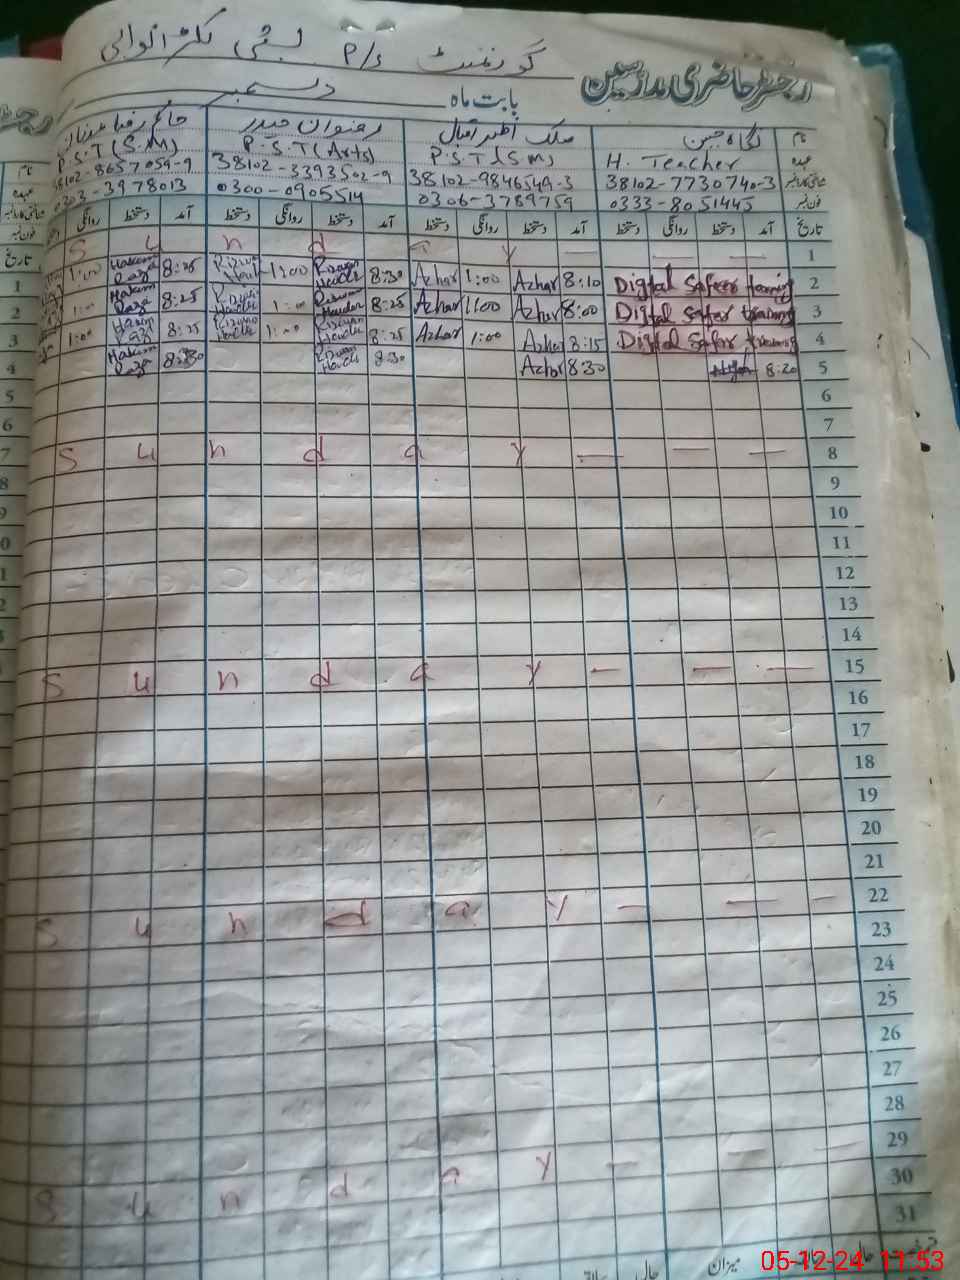 گورنمنٹ P/s بستی
رجسٹر حاضری مدرسین
بابت ماہ دسمبر
نام
عہدہ
شناختی کارڈ نمبر
فون نمبر
تاریخ
H. Teacher
38102-7730740-3
0333-8051445
ملک اظہر اقبال
P.S.T (S.M)
38102-9846549-3
0306-3789759
رضوان حیدر
P.S.T (Arts)
38102-3393502-9
0300-0905514
P.S.T (S.M)
38102-8657059-9
0303-3978013
تاریخ آمد دستخط روانگی دستخط آمد دستخط روانگی دستخط آمد دستخط روانگی دستخط آمد دستخط روانگی
1 S u n d a y — — —
2 Digital Safeer 8:10 Azhar 1:00 Azhar 8:30 1:00 8:25 Hakeem Raza 1:00
3 Digital Safeer training 8:00 Azhar 1:00 Azhar 8:25 1:00 8:25 Hakeem Raza 1:00
4 Digital Safeer 8:15 Azhar 1:00 Azhar 8:25 1:00 8:25 1:00
5 8:20 8:30 Azhar 8:30 8:30 Hakeem Raza
6
7
8 S u n d a y — — —
9
10
11
12
13
14
15 S u n d a y — — —
16
17
18
19
20
21
22 S u n d a y — — —
23
24
25
26
27
28
29 S u n d a y — — —
30
31
میزان
05-12-24 11:53